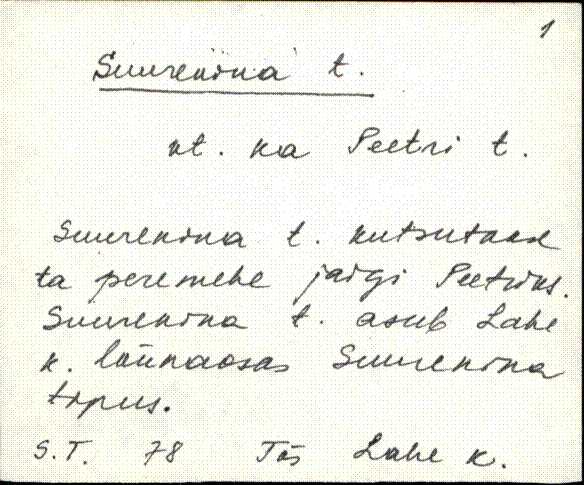 1
Suurenina t.
vt. ka Peetri t.
Suurenina t. kutsutakse
ta peremehe järgi Peetriks.
Suurenina t. asub Lahe
k. lõunaosas Suurenina
tipus.
S.T. 78 Jõe Lahe k.